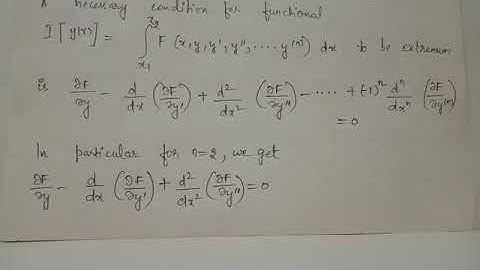 A necessary condition for functional
I[y(x)] = ∫_{x₁}^{x₂} F(x, y, y', y'', .... y⁽ⁿ⁾) dx to be extremum
is ∂F/∂y - d/dx (∂F/∂y') + d²/dx² (∂F/∂y'') - ..... + (-1)ⁿ dⁿ/dxⁿ (∂F/∂y⁽ⁿ⁾)
= 0
In particular for n=2, we get
∂F/∂y - d/dx (∂F/∂y') + d²/dx² (∂F/∂y'') = 0